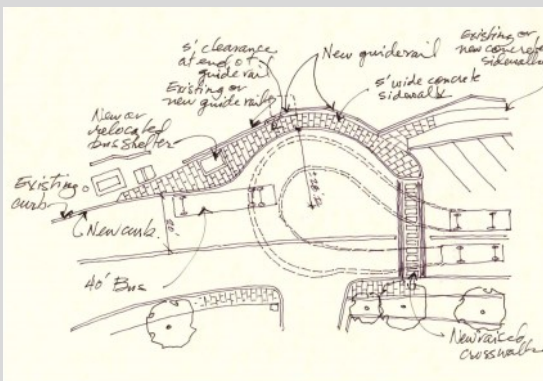 5' clearance
at end of
guiderail
Existing or
new guide rail
New guiderail
5' wide concrete
sidewalk
Existing or
new concrete
sidewalk
New or
relocated
bus shelter
Existing
curb
New curb
20'
40' Bus
New raised
crosswalk